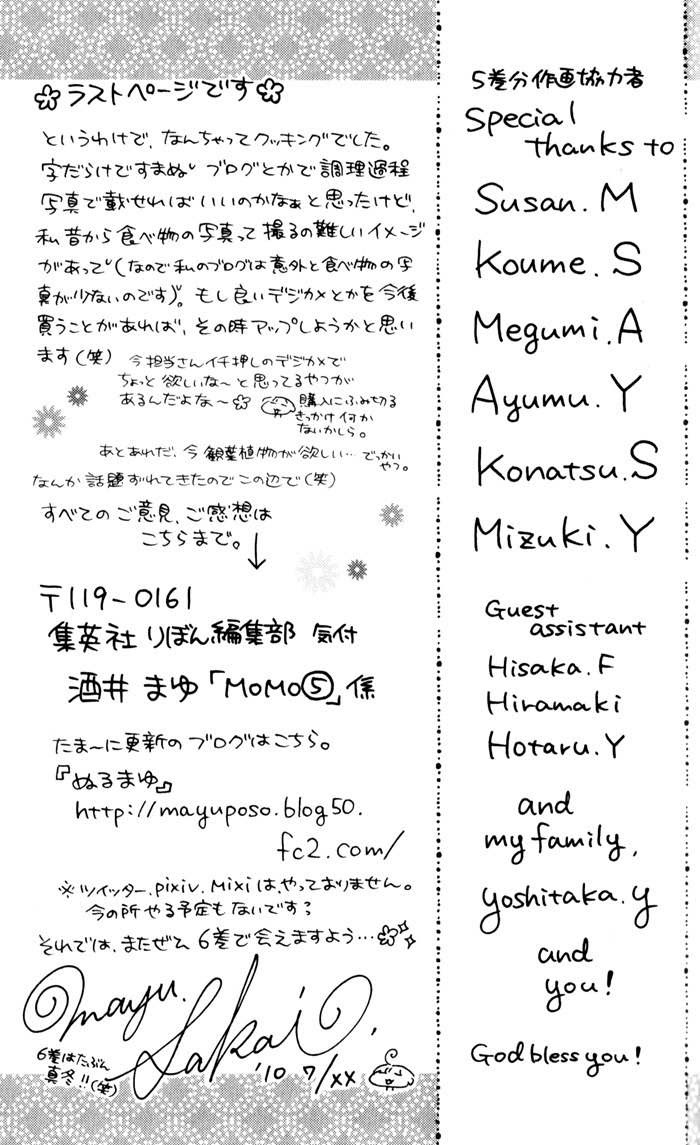 ラストページです
というわけで、なんちゃってクッキングでした。
字だらけですまぬ ブログとかで調理過程
写真で載せればいいのかなぁと思ったけど、
私昔から食べ物の写真って撮るの難しいイメージ
があって(なので私のブログは意外と食べ物の写
真が少ないのです)。もし良いデジカメとかを今後
買うことがあれば、その時アップしようかと思い
ます(笑)
今担当さんイチ押しのデジカメで
ちょっと欲しいな〜と思ってるやつが
あるんだよな〜
購入にふみ切る
きっかけ何か
ないかしら。
あとあれだ、今観葉植物が欲しい…でっかい
やつ。
なんか話題ずれてきたのでこの辺で(笑)
すべてのご意見、ご感想は
こちらまで。↓
〒119-0161
集英社りぼん編集部 気付
酒井まゆ「MOMO⑤」係
たま〜に更新のブログはこちら。
『ぬるまゆ』
http://mayuposo.blog50.
fc2.com/
※ツイッター、pixiv、Mixiは、やっておりません。
今の所やる予定もないです?
それでは、またぜひ6巻で会えますよう…
mayu.
Sakai.
'10 7/XX
6巻はたぶん
真冬!!(笑)
5巻分作画協力者
Special
thanks to
Susan. M
Koume. S
Megumi. A
Ayumu. Y
Konatsu. S
Mizuki. Y
Guest
assistant
Hisaka. F
Hiramaki
Hotaru. Y
and
my family,
yoshitaka. y
and
you!
God bless you!